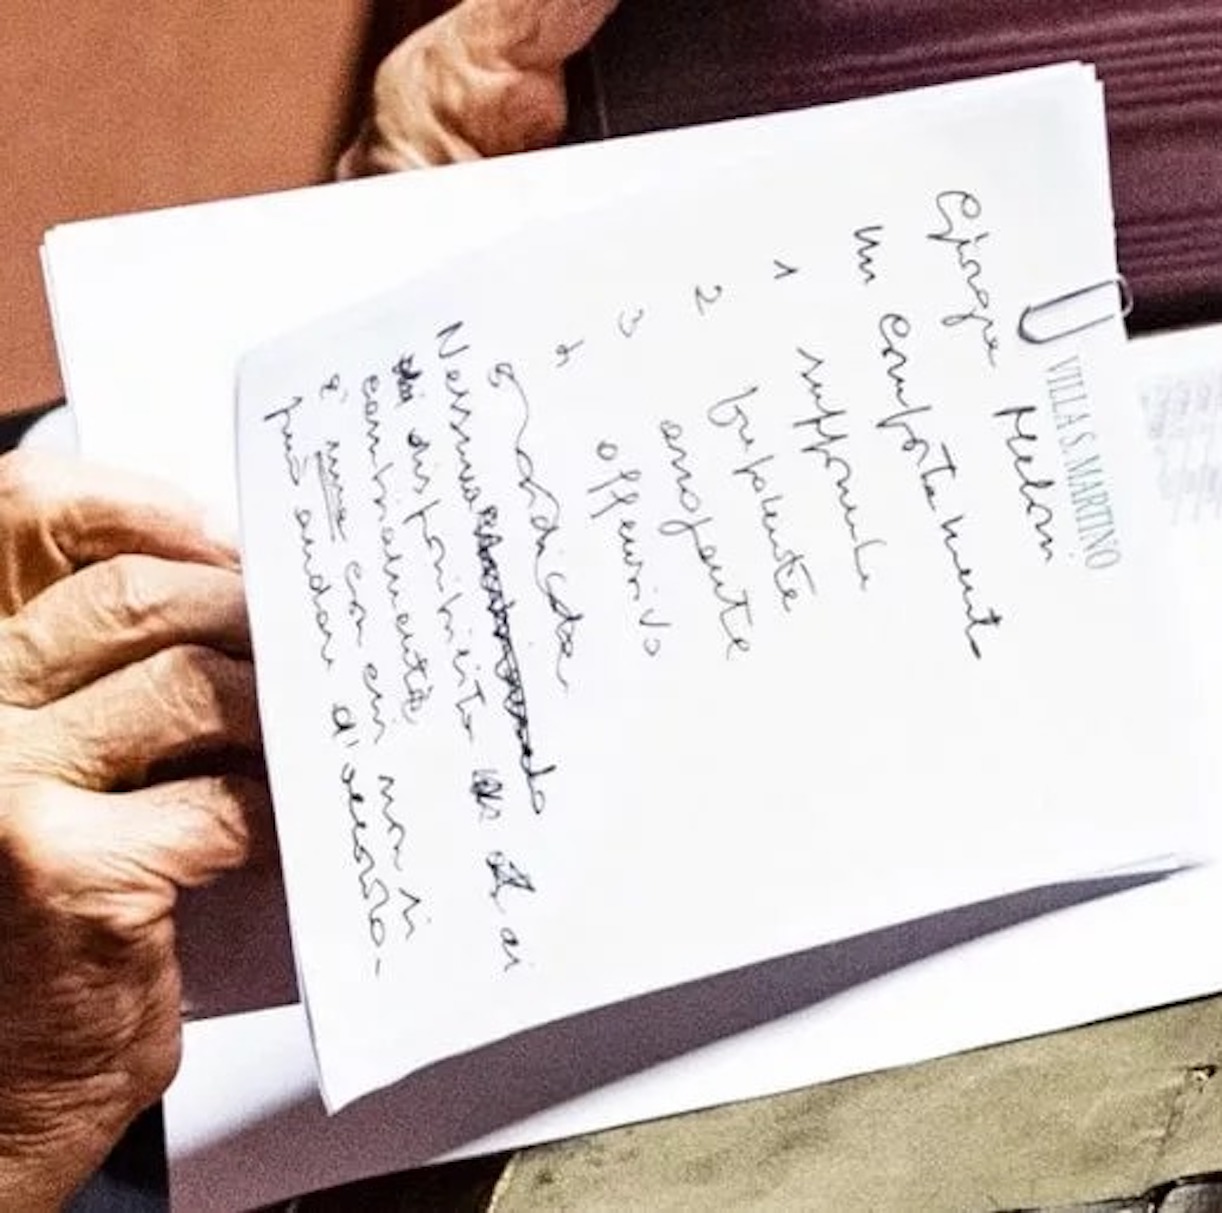 VILLA S. MARTINO
Giorgia Meloni
un comportamento
1 supponente
2 prepotente
3 arrogante
4 offensivo
5 ridicola
Nessuna
disponibilità ai
cambiamenti
è una con cui non si
può andare d'accordo-